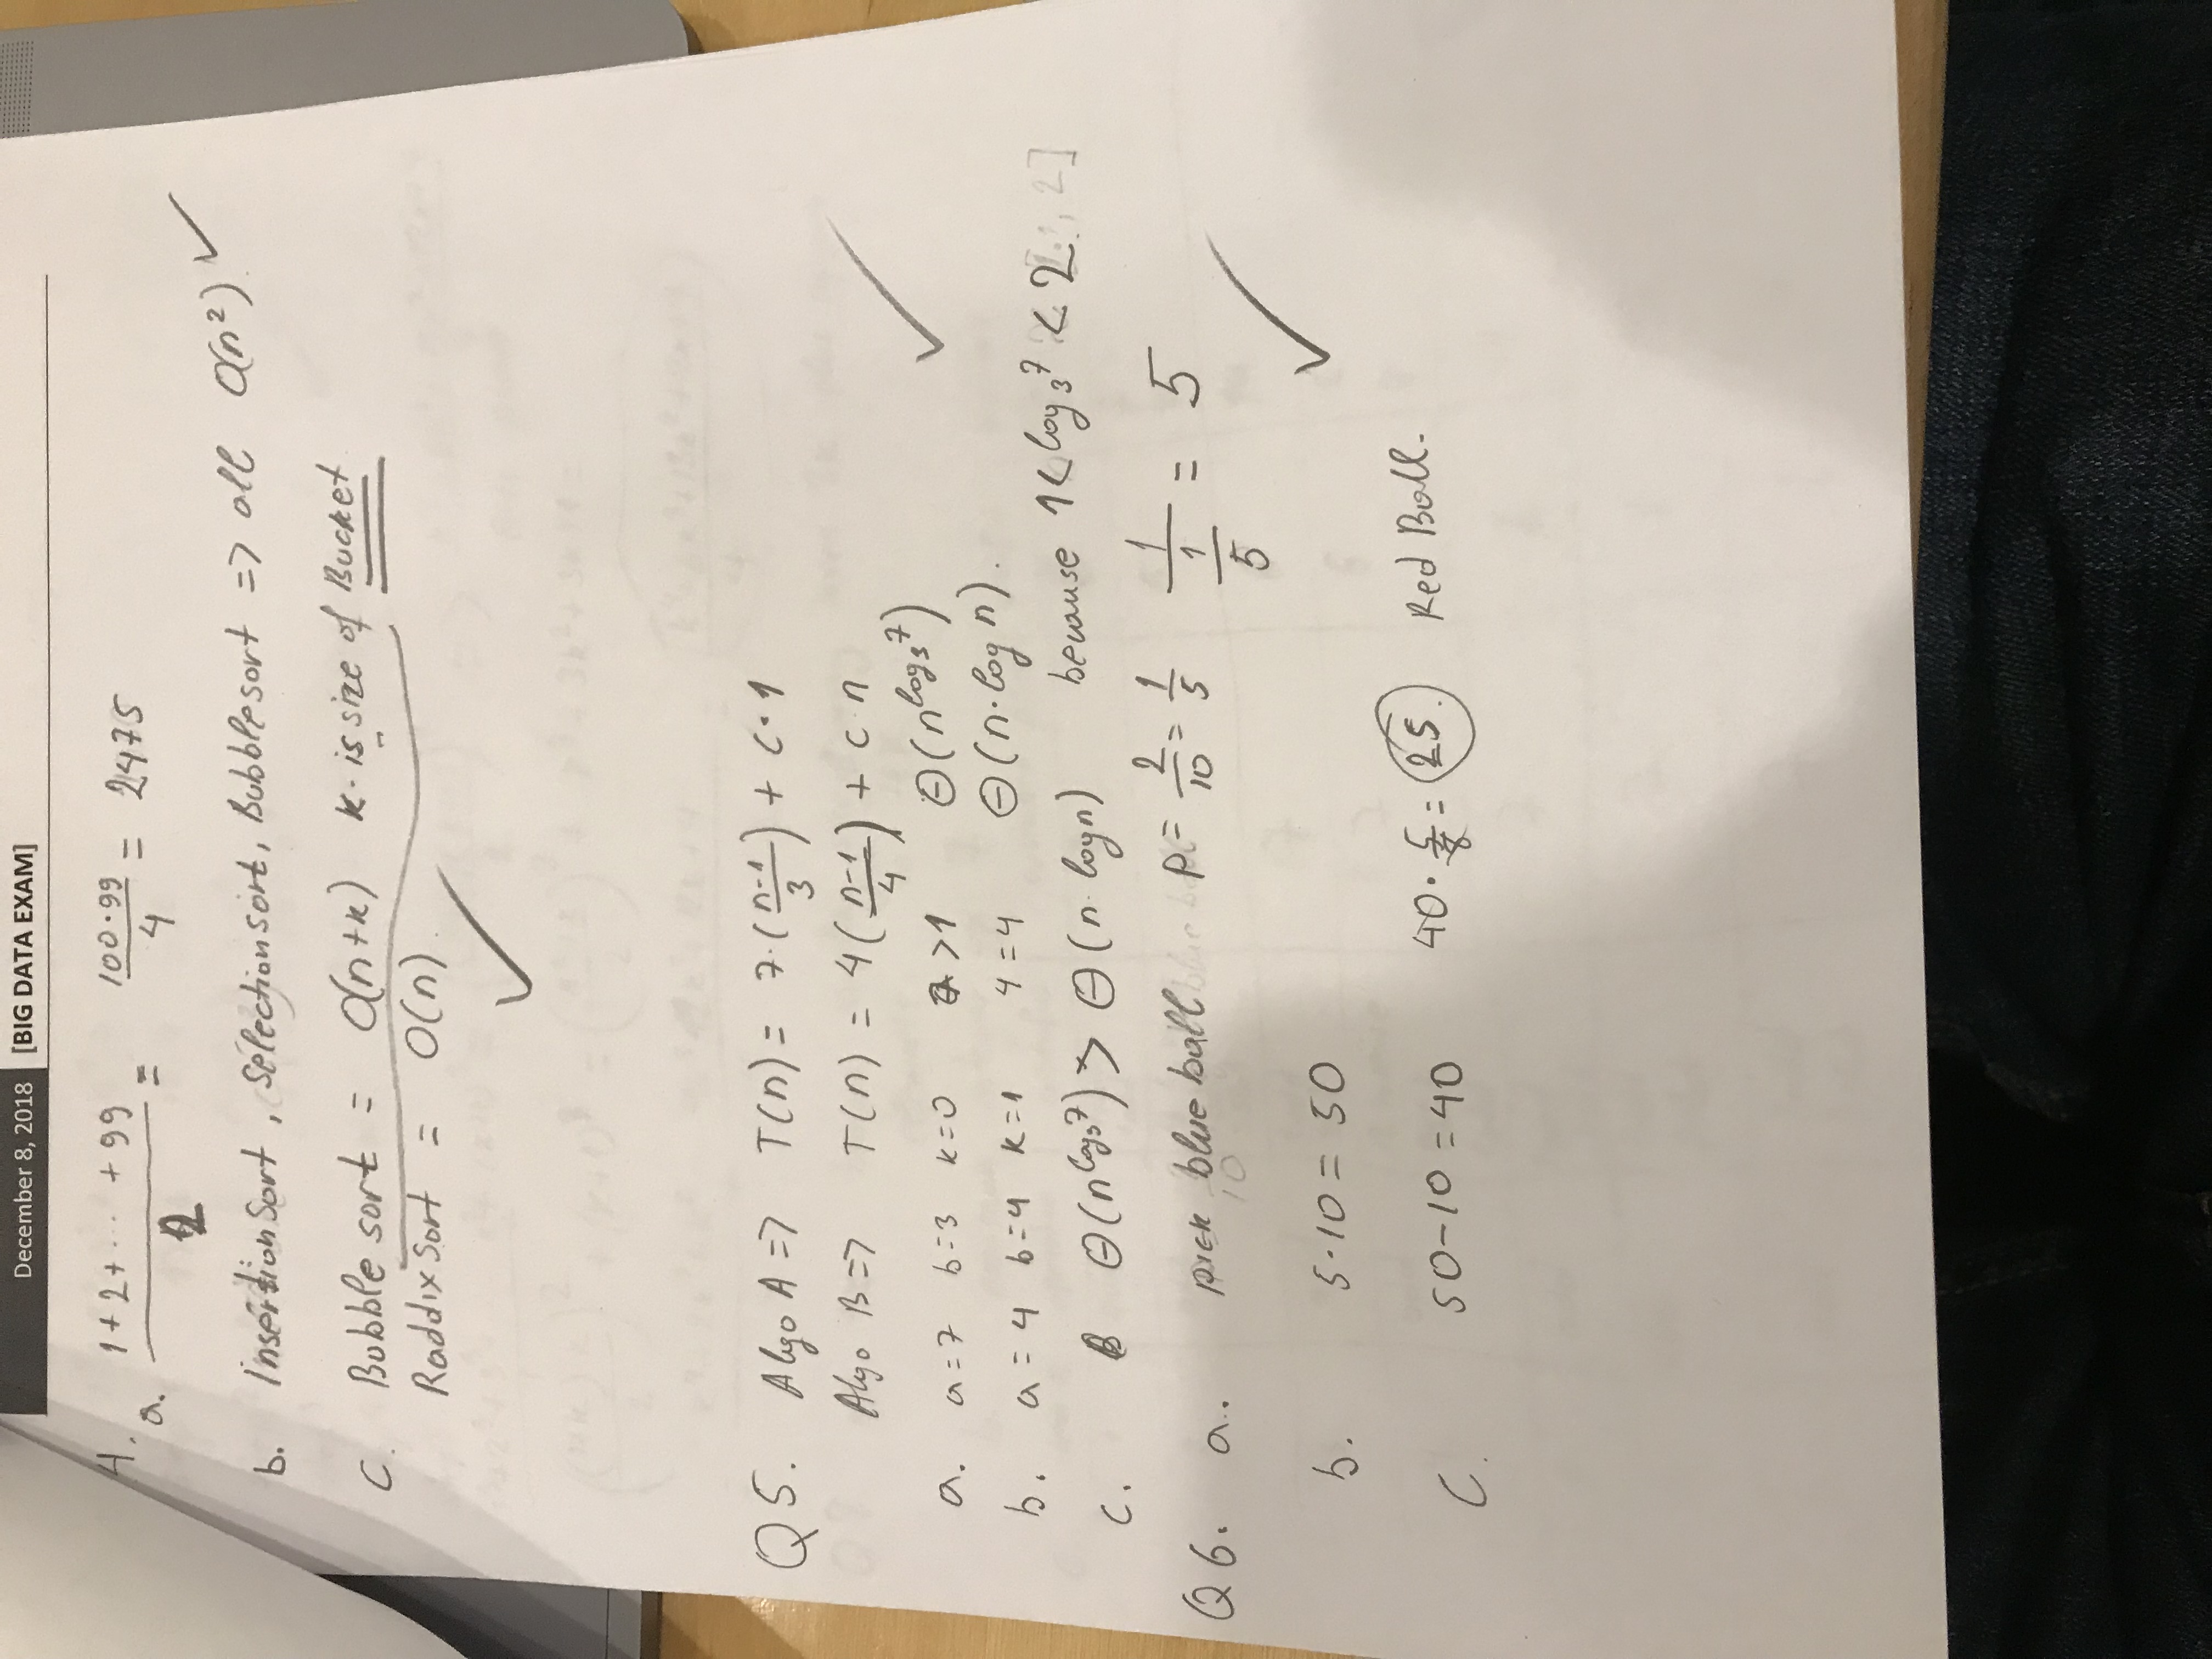 December 8, 2018 [BIG DATA EXAM]
4. a. (1+2+··· +99)/2 = (100·99)/4 = 2475
b. Insertion Sort, Selection sort, Bubble sort => all O(n²). ✓
c. Bubble sort = O(n+k) k is size of Bucket
Raddix Sort = O(n).
✓
Q5. Algo A => T(n) = 7·((n-1)/3) + c·1
Algo B => T(n) = 4((n-1)/4) + c n
✓
a. a=7 b=3 k=0 7>1 Θ(n^log₃7)
b. a=4 b=4 k=1 4=4 Θ(n·log n).
c. Θ(n^log₃7) > Θ(n·logn) because 1<log₃7 < 2
Q6. a. pick blue ball p = 2/10 = 1/5 1/(1/5) = 5
✓
b. 5·10 = 50
C. 50-10 = 40 40·5/8 = 25. Red Ball.